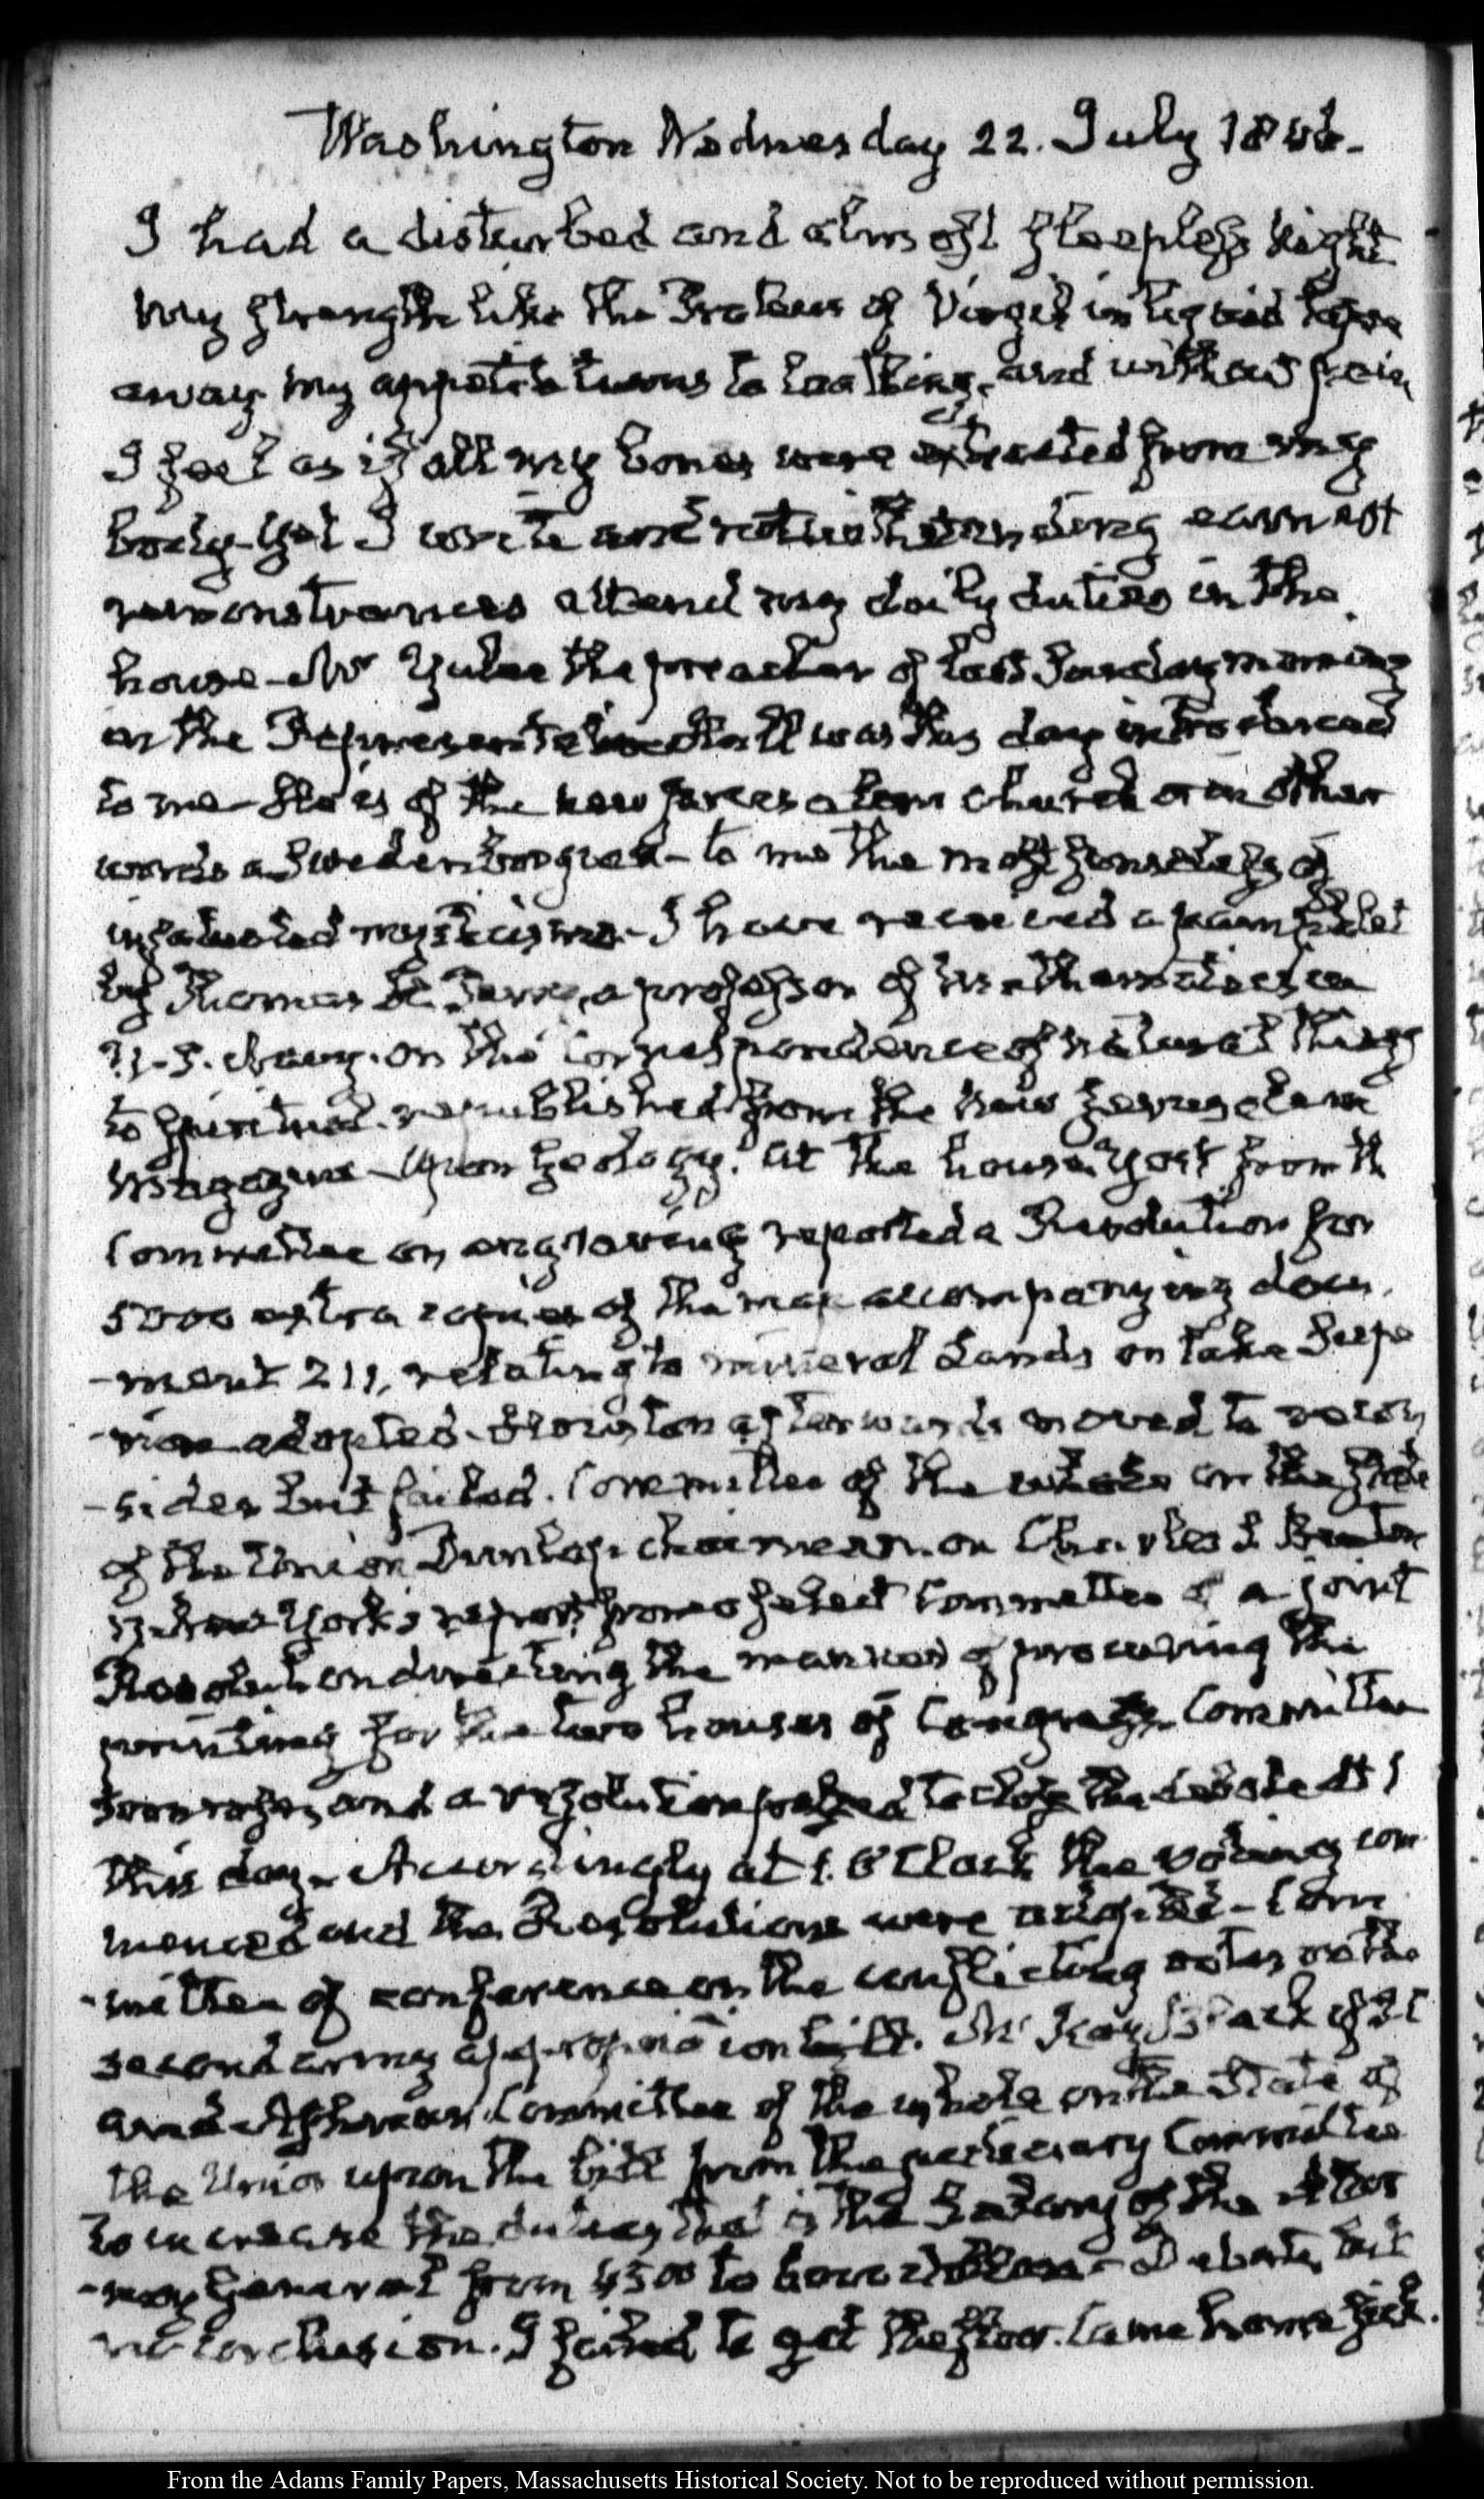 Washington Wednesday 22. July 1846.
I had a disturbed and almost sleepless night
My strength like the Proteus of Virgil in liquid
away my appetite turns to loathing, and without pain
I feel as if all my bones were extracted from my
body. Yet I write and notwithstanding earnest
remonstrances attend my daily duties in the
house. Mr Yulee the preacher of last Sunday morning
in the Representative Hall was this day introduced
to me— He is of the new Jerusalem Church or in other
words a Swedenborgian— to me the most senseless of
infatuated mysticisms— I have received a pamphlet
by Thomas a professor of Mathematics in
U.S. Navy. on the correspondence of natural things
to spiritual. republished from the New Jerusalem
Magazine— Upon Geology. At the house Yost from th
Committee on engraving reported a Resolution for
5000 extra copies of the map accompanying docu
-ment 211, relating to mineral Lands on Lake Supe
-rior adopted. Houston afterwards moved to recon
-sider but failed. Committee of the whole on the State
of the Union Dunlap chairman. on Charles S. Benton
of New York's report from a select Committee of a joint
Resolution directing the manner of procuring the
printing for the two houses of Congress. Committee
soon rose, and a resolution passed to close the debate at 1
this day. Accordingly at 1. O'Clock the voting com
menced and the Resolutions were adopted— Com
-mittee of conference on the conflicting votes on the
second army appropriation bill. McKay, Black of S.C
and Ashmun. Committee of the whole on the State of
the Union upon the bill from the judiciary Committee
to increase the duties, that is the Salary of the Attor
-ney General from 4500 to Debate, but
no conclusion. I failed to get the floor. Came home sick.
From the Adams Family Papers, Massachusetts Historical Society. Not to be reproduced without permission.